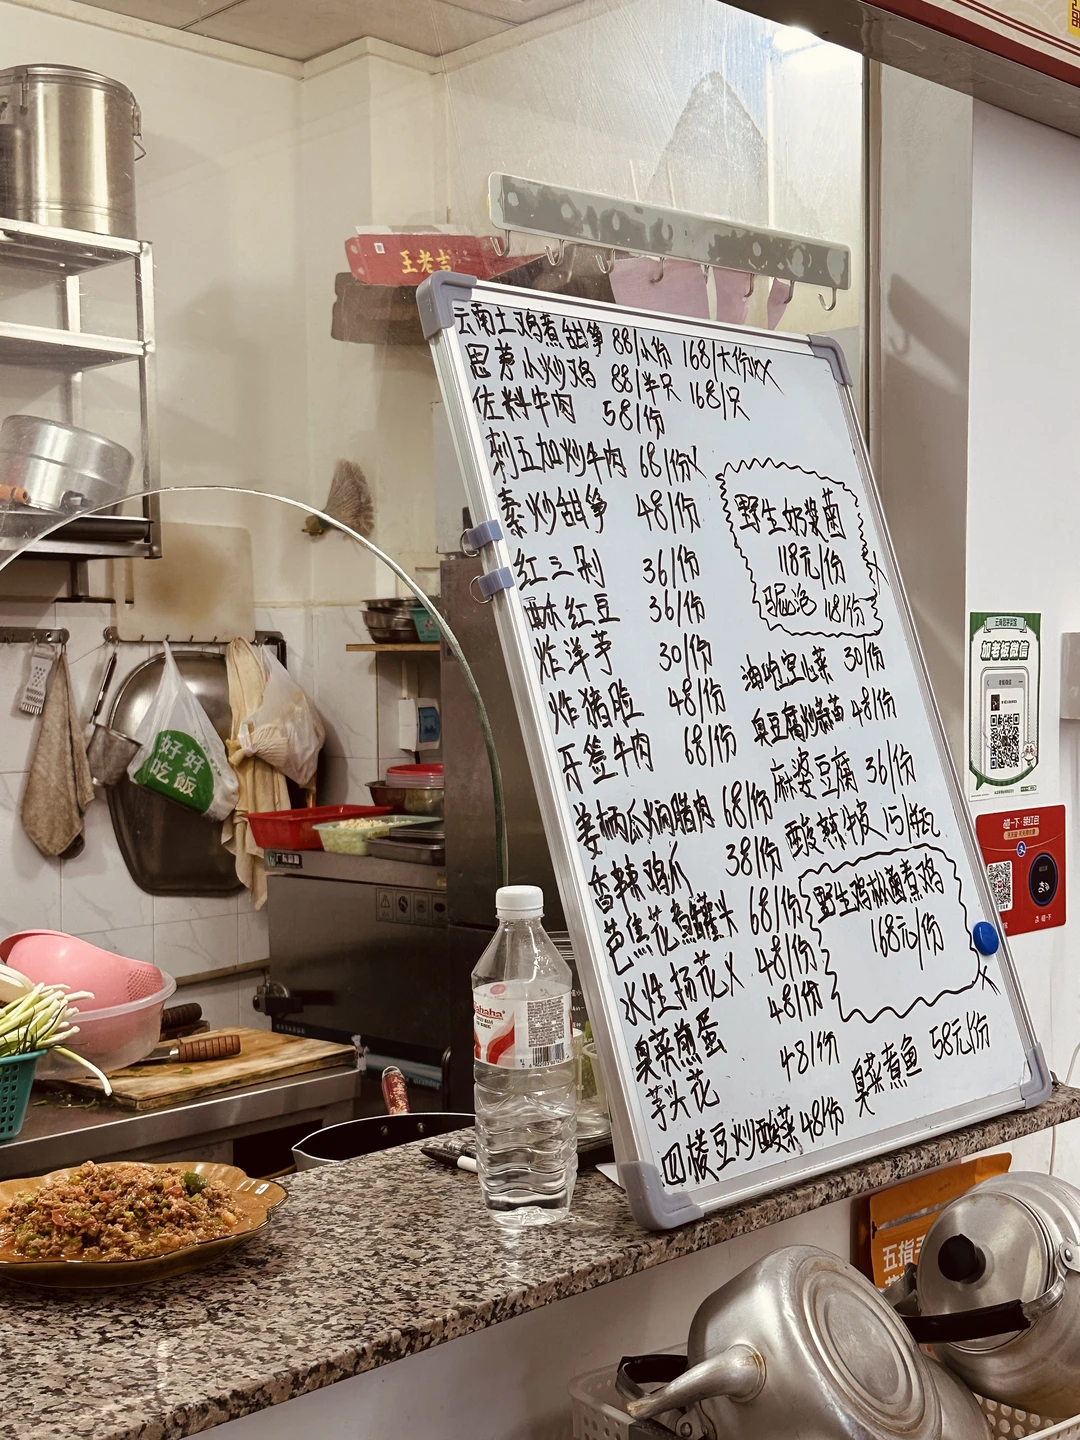 王老吉
云南土鸡煮甜笋 88/小份 168/大份XX
思茅小炒鸡 88/半只 168/只
佐料牛肉 58/份
刺五加炒牛肉 68/份X
素炒甜笋 48/份
红三剁 36/份
酥红豆 36/份
炸洋芋 30/份
炸猪脸 48/份
牙签牛肉 68/份
姜柄瓜焖腊肉 68/份
香辣鸡爪 38/份
芭蕉花煮罐头 68/份
水性杨花X 48/份
臭菜煎蛋 48/份
芋头花 48/份
四棱豆炒酸菜 48/份
野生奶浆菌
118元/份
118/份
油焖空心菜 30/份
臭豆腐炒蒜苗 48/份
麻婆豆腐 36/份
酸辣牛皮 15/瓶
野生鸡枞菌煮鸡
168元/份
X
臭菜煮鱼 58元/份
好好
吃饭
加老板微信
五指毛